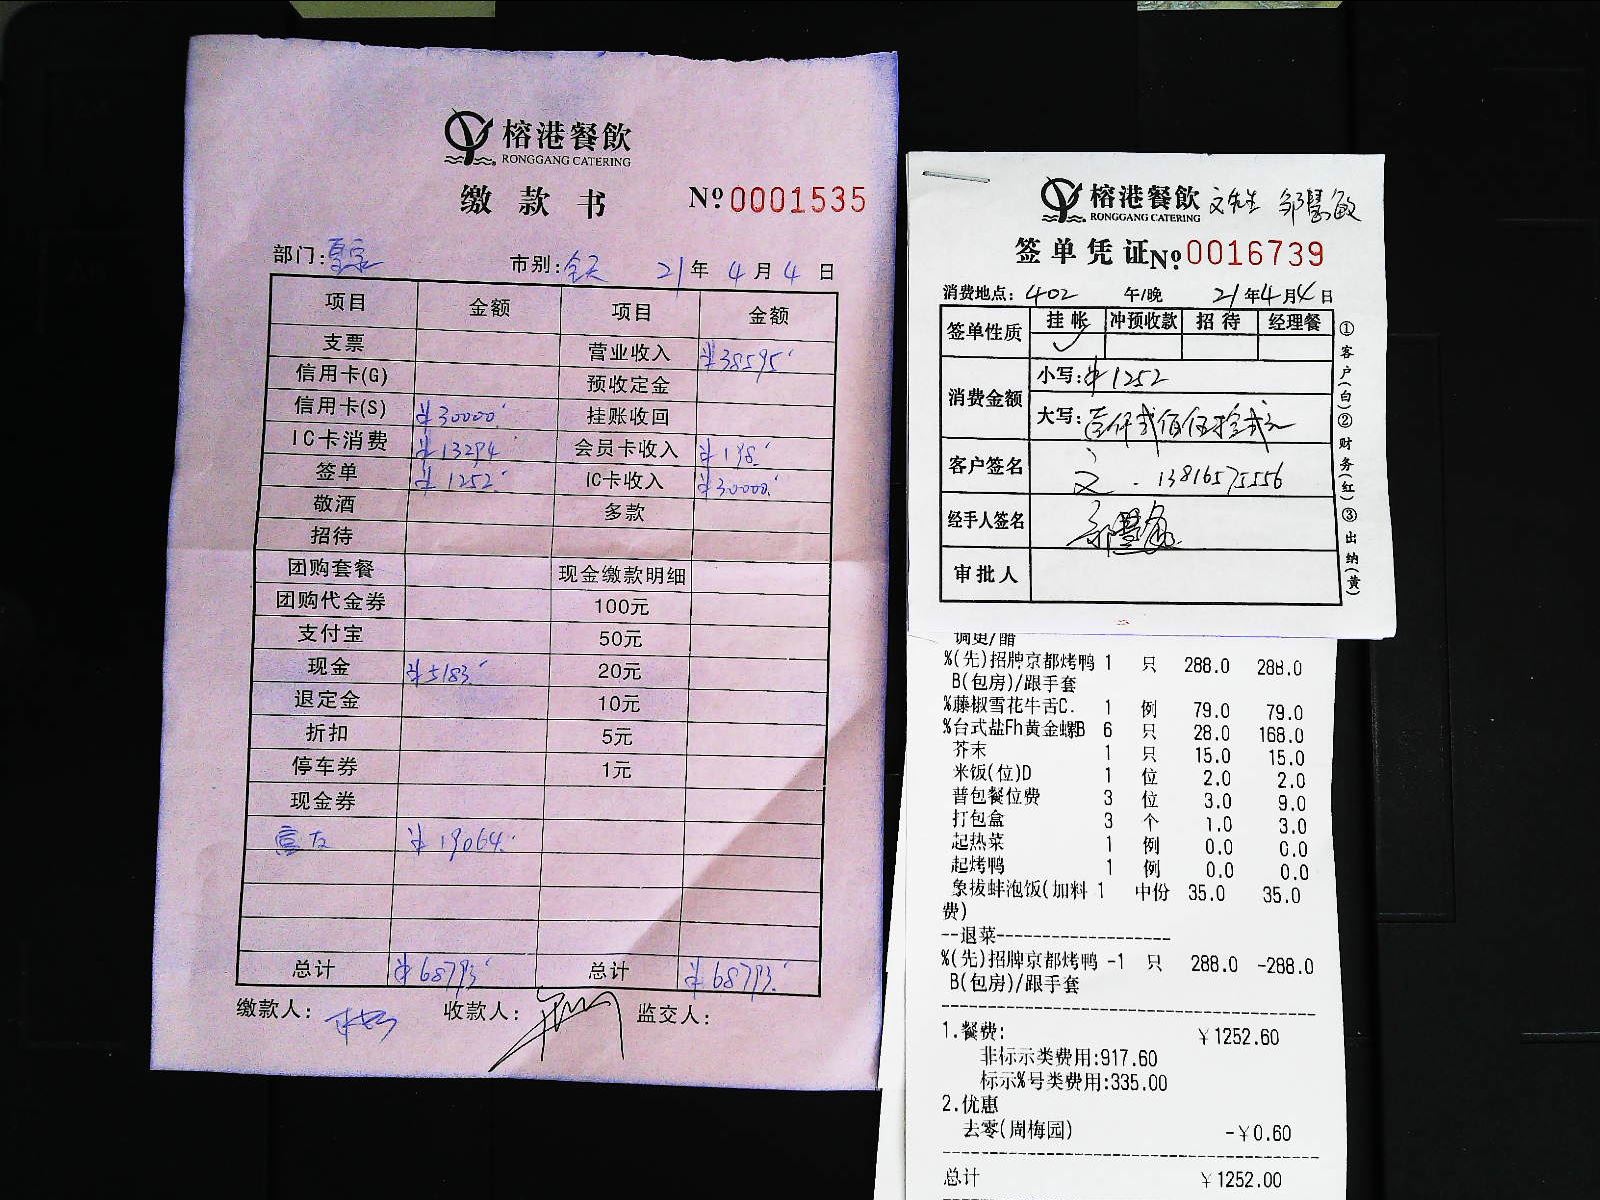 榕港餐飲
RONGGANG CATERING
缴款书 №0001535
部门: 市别:全天 21年4月4日
项目 金额 项目 金额
支票 营业收入 ¥38595
信用卡(G) 预收定金
信用卡(S) ¥30000 挂账收回
IC卡消费 ¥13294 会员卡收入 ¥198
签单 ¥1252 IC卡收入 ¥30000
敬酒 多款
招待
团购套餐 现金缴款明细
团购代金券 100元
支付宝 50元
现金 ¥5183 20元
退定金 10元
折扣 5元
停车券 1元
现金券
¥19064
总计 ¥68793 总计 ¥68793
缴款人: 收款人: 监交人:
榕港餐飲 文先生 邹慧敏
RONGGANG CATERING
签单凭证№0016739
消费地点:402 午/晚 21年4月4日
签单性质 挂帐 冲预收款 招待 经理餐
✓
消费金额 小写:¥1252
大写:壹仟贰佰伍拾贰元
客户签名 文.13816575556
经手人签名 邹慧敏
审批人
①客户(白)②财务(红)③出纳(黄)
调更/醋
%(先)招牌京都烤鸭 1 只 288.0 288.0
B(包房)/跟手套
%藤椒雪花牛舌C. 1 例 79.0 79.0
%台式盐Fh黄金螺B 6 只 28.0 168.0
芥末 1 只 15.0 15.0
米饭(位)D 1 位 2.0 2.0
普包餐位费 3 位 3.0 9.0
打包盒 3 个 1.0 3.0
起热菜 1 例 0.0 0.0
起烤鸭 1 例 0.0 0.0
象拔蚌泡饭(加料 1 中份 35.0 35.0
费)
--退菜--------------------
%(先)招牌京都烤鸭 -1 只 288.0 -288.0
B(包房)/跟手套
1.餐费: ¥1252.60
非标示类费用:917.60
标示%号类费用:335.00
2.优惠
去零(周梅园) -¥0.60
总计 ¥1252.00